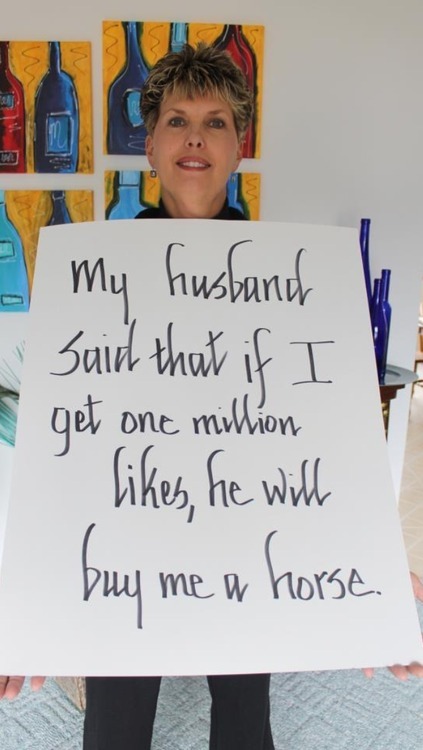 My husband
said that if I
get one million
likes, he will
buy me a horse.